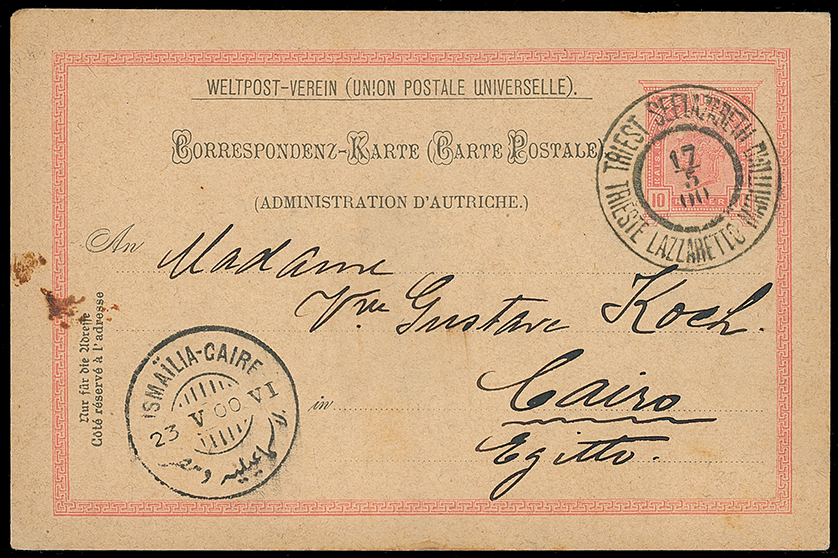 WELTPOST-VEREIN (UNION POSTALE UNIVERSELLE).
CORRESPONDENZ-KARTE (CARTE POSTALE)
(ADMINISTRATION D'AUTRICHE.)
10 HELLER
TRIEST SEELAZARETH
TRIESTE LAZZARETTO MARITTIMO
17
5
00
An Madame
Vve Gustave Koch.
in Cairo
Egitto.
Nur für die Adresse
Côté réservé à l'adresse
ISMAÏLIA-CAIRE
23 V 00 VI